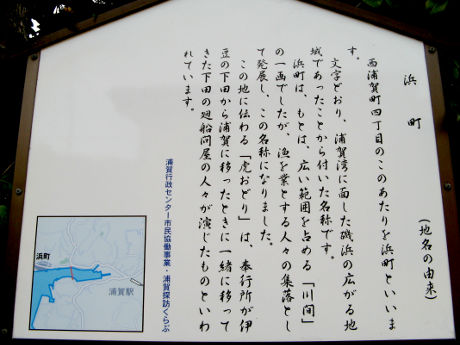 浜町
(地名の由来)
西浦賀町四丁目のこのあたりを浜町といいま
す。
文字どおり、浦賀湾に面した磯浜の広がる地
域であったことから付いた名称です。
浜町は、もとは、広い範囲を占める「川間」
の一画でしたが、漁を業とする人々の集落とし
て発展し、この名称になりました。
この地に伝わる「虎おどり」は、奉行所が伊
豆の下田から浦賀に移ったときに一緒に移って
きた下田の廻船問屋の人々が演じたものといわ
れています。
浦賀行政センター市民協働事業・浦賀探訪くらぶ
浜町
浦賀駅